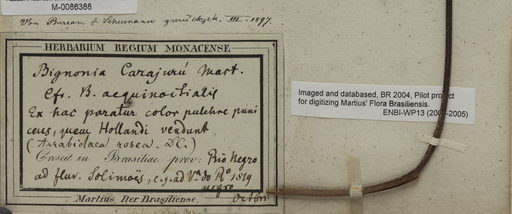 M-0086388
Von Bureau & Schumann zurückgeh. III. 1897.
HERBARIUM REGIUM MONACENSE.
Bignonia Carajurú Mart.
Cfr. B. aequinoctialis
Ex hac paratur color pulchre puni
ceus, quem Hollandi vendunt
(Arrabidaea rosea. DC.)
Crescit in Brasiliae prov: Rio Negro
ad fluv. Solimoës, e.g. ad Va. do Ro. 1819
negro Octbri
Martius Iter Brasiliense.
Imaged and databased, BR 2004, Pilot project
for digitizing Martius' Flora Brasiliensis.
ENBI-WP13 (2004-2005)